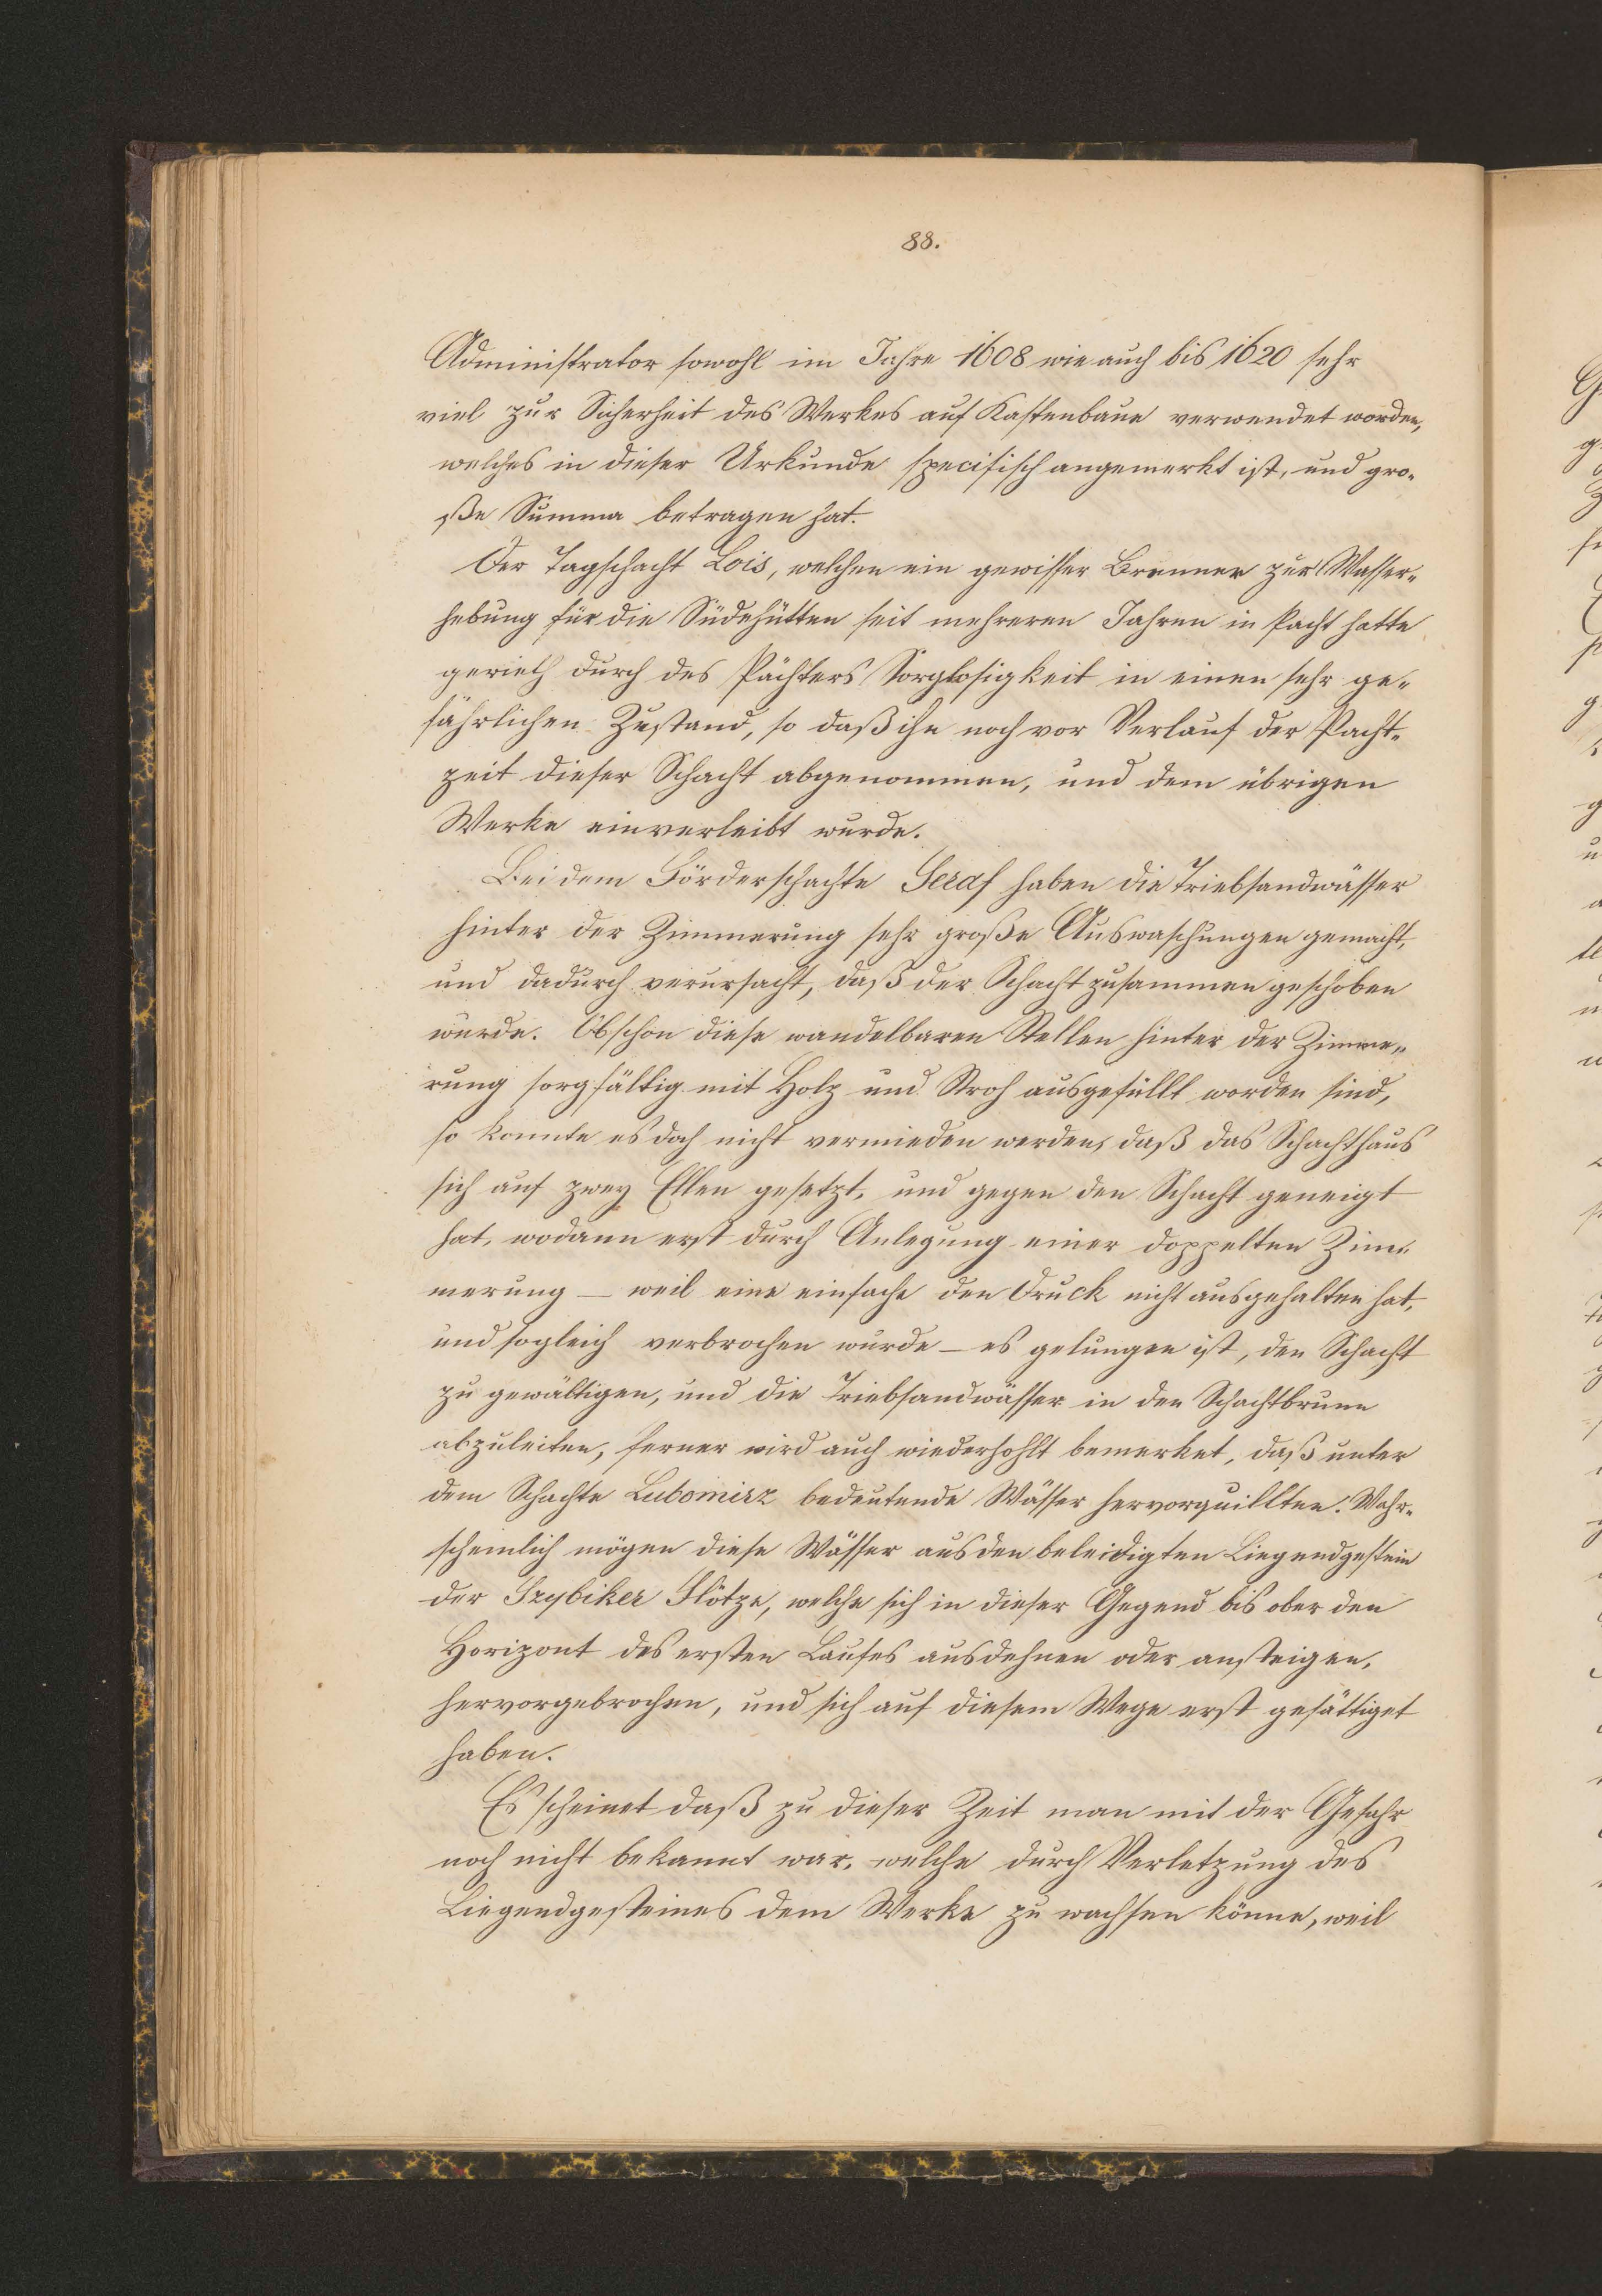 88.
Administrator sowohl im Jahre 1608 wie auch bis 1620 sehr
viel zur Sicherheit des Werkes auf Kastenbaue verwendet worden,
welches in dieser Urkunde specifisch angemerkt ist, und gro-
ße Summa betragen hat.
Der Tagschacht Lois, welchen ein gewisser Brenner zur Wasser-
hebung für die Südehütten seit mehreren Jahren in Pacht hatte
gerieth durch des Pächters Sorglosigkeit in einen sehr ge-
fährlichen Zustand, so daß ihn noch vor Verlauf der Pacht-
zeit dieser Schacht abgenommen, und dem übrigen
Werke einverleibt wurde.
Bei dem Förderschachte Seraf haben die Triebsandwässer
hinter der Zimmerung sehr große Auswaschungen gemacht,
und dadurch verursacht, daß der Schacht zusammen geschoben
wurde. Obschon diese wandelbaren Stellen hinter der Zimme-
rung sorgfältig mit Holz und Stroh ausgefüllt worden sind,
so konnte es doch nicht vermieden werden, daß das Schachthaus
sich auf zwey Ellen gesetzt, und gegen den Schacht geneigt
hat, wodann erst durch Anlegung einer doppelten Zim-
merung – weil eine einfache den Druck nicht ausgehalten hat,
und sogleich verbrochen wurde – es gelungen ist, den Schacht
zu gewältigen, und die Triebsandwässer in den Schachtbrunn
abzuleiten, ferner wird auch wiederhohlt bemerket, daß unter
dem Schachte Lubomirz bedeutende Wässer hervorquillten. Wahr-
scheinlich mögen diese Wässer aus den beleidigten Liegendgestein
der Szybiker Flötze, welche sich in dieser Gegend bis ober den
Horizont des ersten Laufes ausdehnen oder ansteigen,
hervorgebrochen, und sich auf diesem Wege erst gesättiget
haben.
Es scheinet daß zu dieser Zeit man mit der Gefahr
noch nicht bekannt war, welche durch Verletzung des
Liegendgesteines dem Werke zu wachsen könne, weil